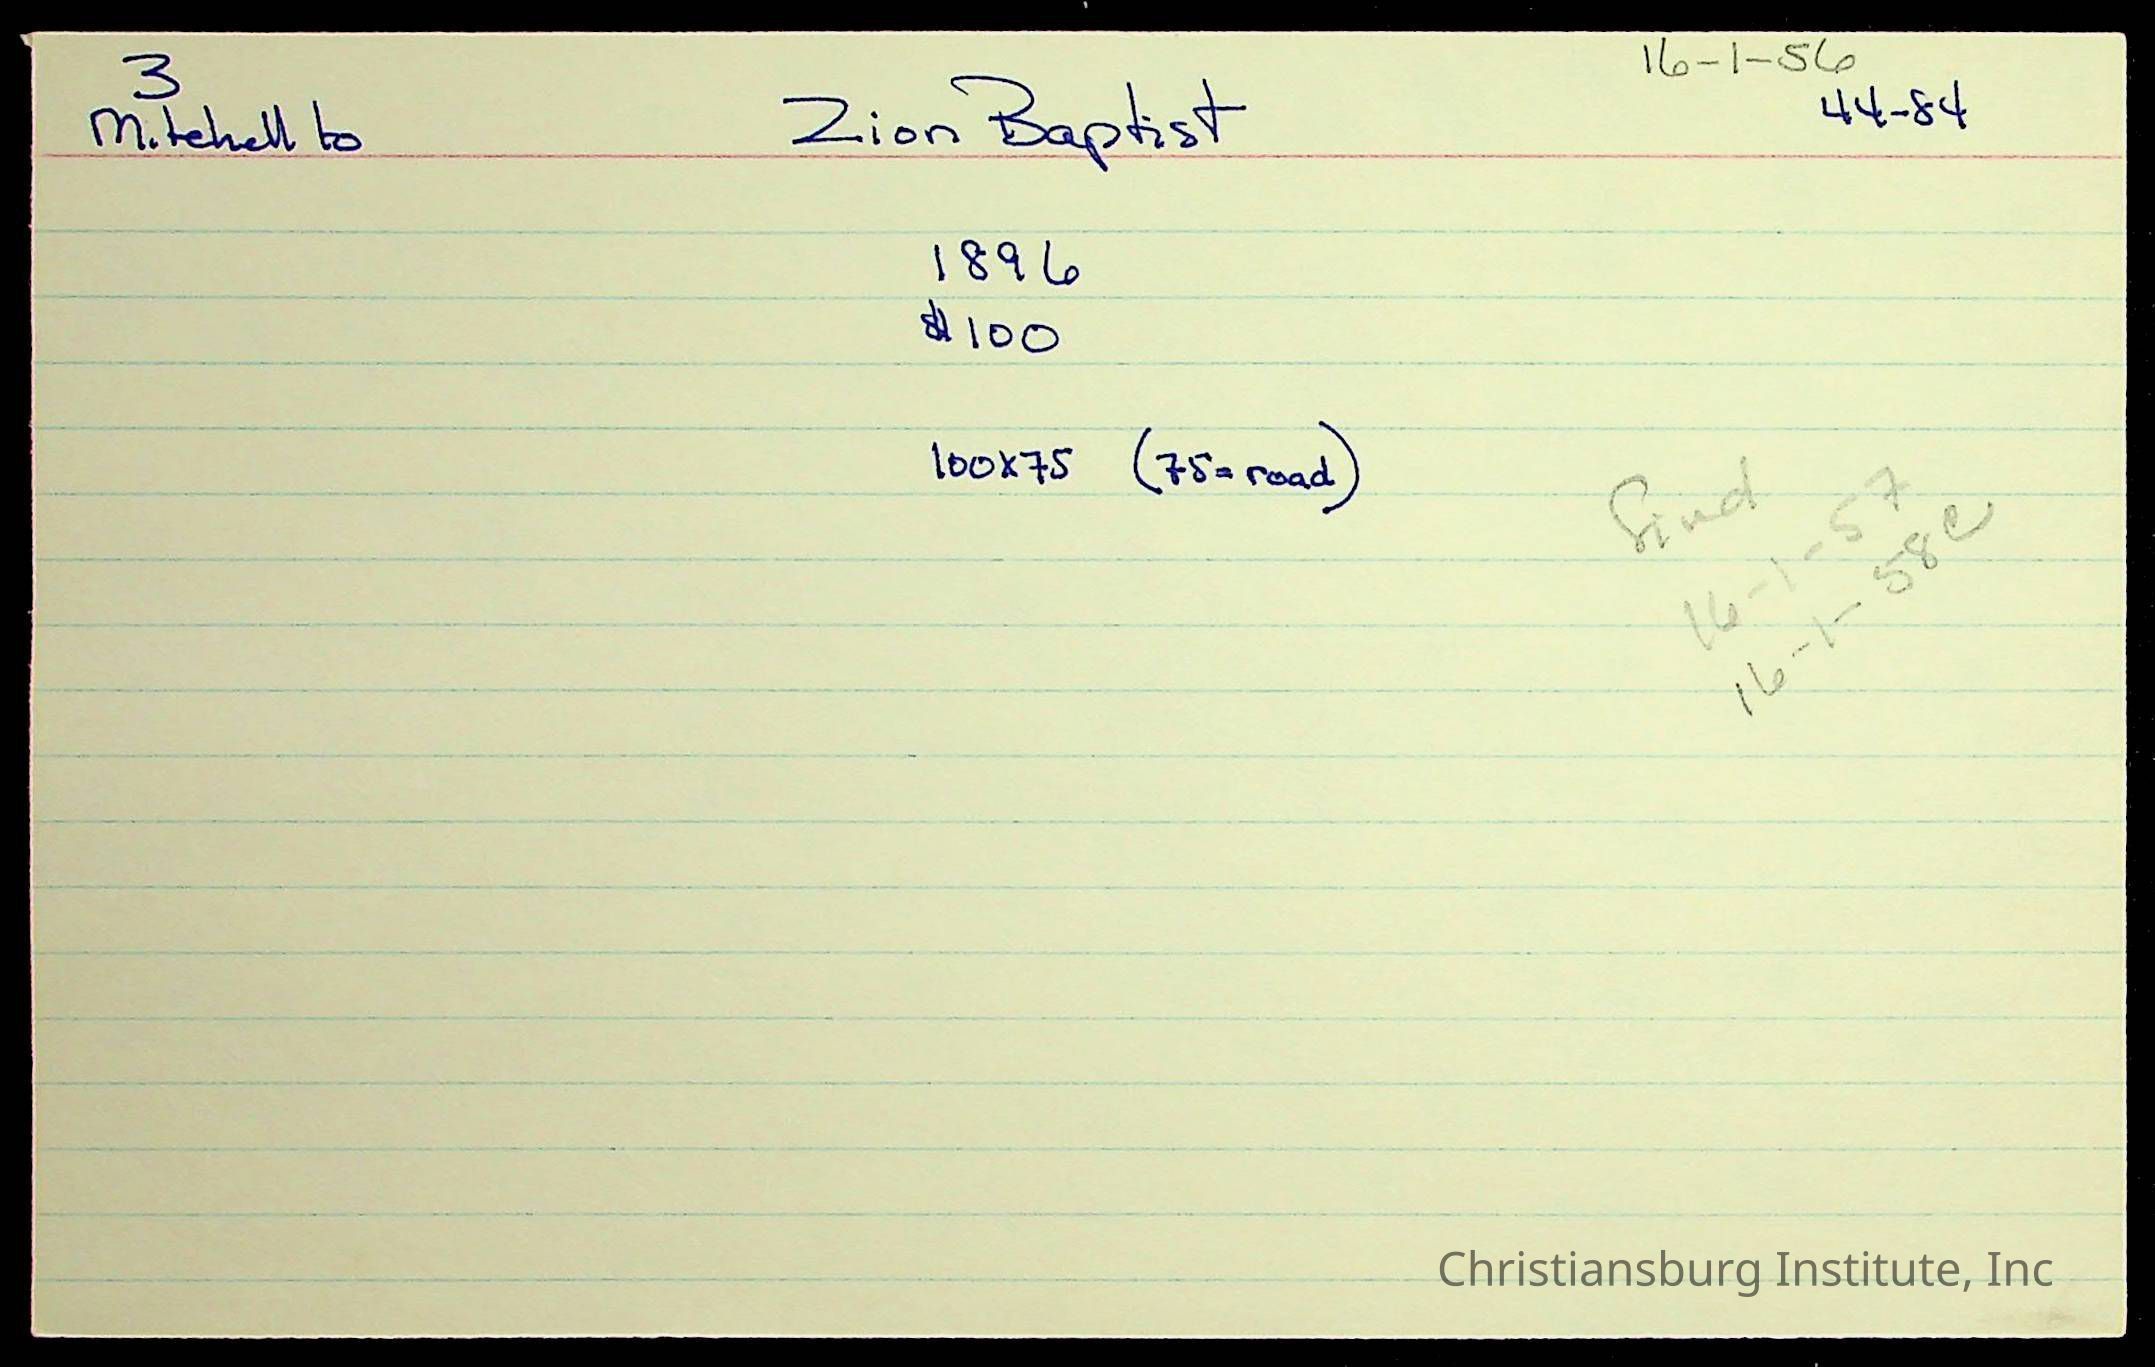 3
Mitchell to
Zion Baptist
16-1-56
44-84
1896
$100
100x75 (75=road)
find
16-1-57
16-1-58C
Christiansburg Institute, Inc